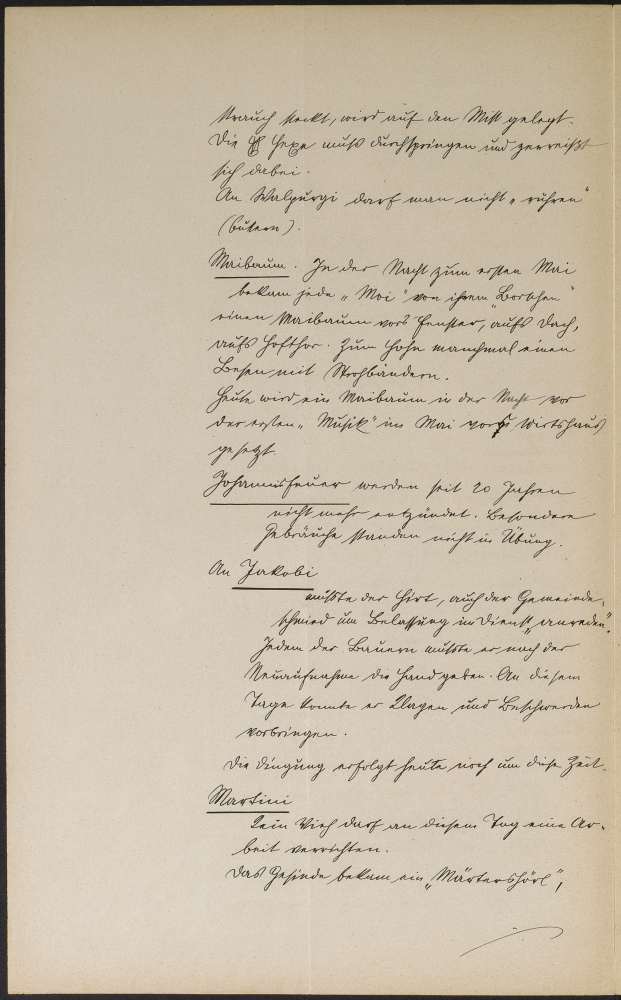 strauch steckt, wird auf den Mist gelegt.
Die Hexe muß durchspringen und zerreißt
sich dabei.
An Walpurgi darf man nicht „rühren"
(buttern).
Maibaum. In der Nacht zum ersten Mai
bekam jede „Moi" von ihrem „Borschen"
einen Maibaum vors Fenster, aufs Dach,
aufs Hofthor. Zum Hohn manchmal einen
Besen mit Strohbändern.
Heute wird ein Maibaum in der Nacht vor
der ersten „Musik" im Mai vors Wirtshaus
gesetzt.
Johannisfeuer werden seit 20 Jahren
nicht mehr entzündet. Besondere
Gebräuche standen nicht in Übung.
An Jakobi
mußte der Hirt, auch der Gemeinde-
schmied um Belassung im Dienst „anreden".
Jedem der Bauern mußte er nach der
Neuaufnahme die Hand geben. An diesem
Tage konnte er Klagen und Beschwerden
vorbringen.
Die Dingung erfolgt heute noch um diese Zeit.
Martini
Kein Vieh darf an diesem Tag eine Ar-
beit verrichten.
Das Gesinde bekam ein „Märtershörl",